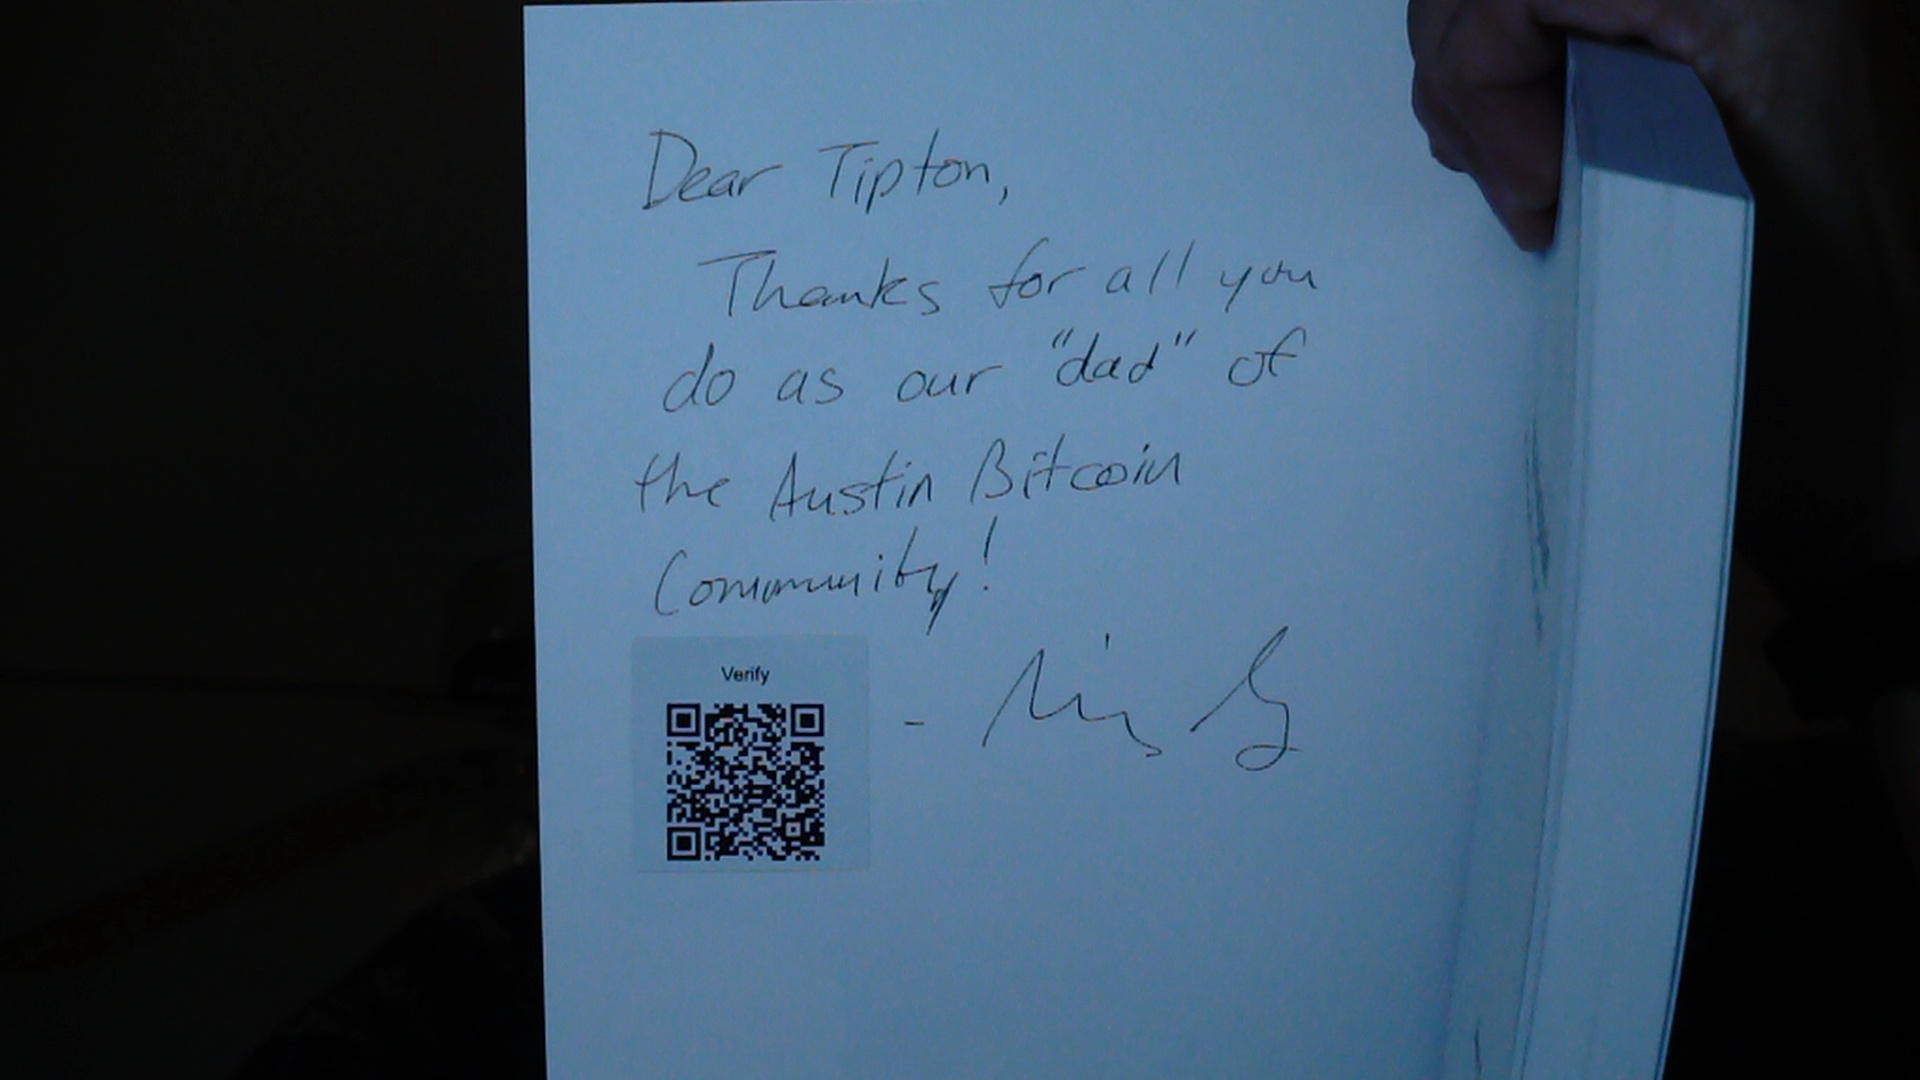 Dear Tipton,
Thanks for all you
do as our "dad" of
the Austin Bitcoin
Community!
Verify
-